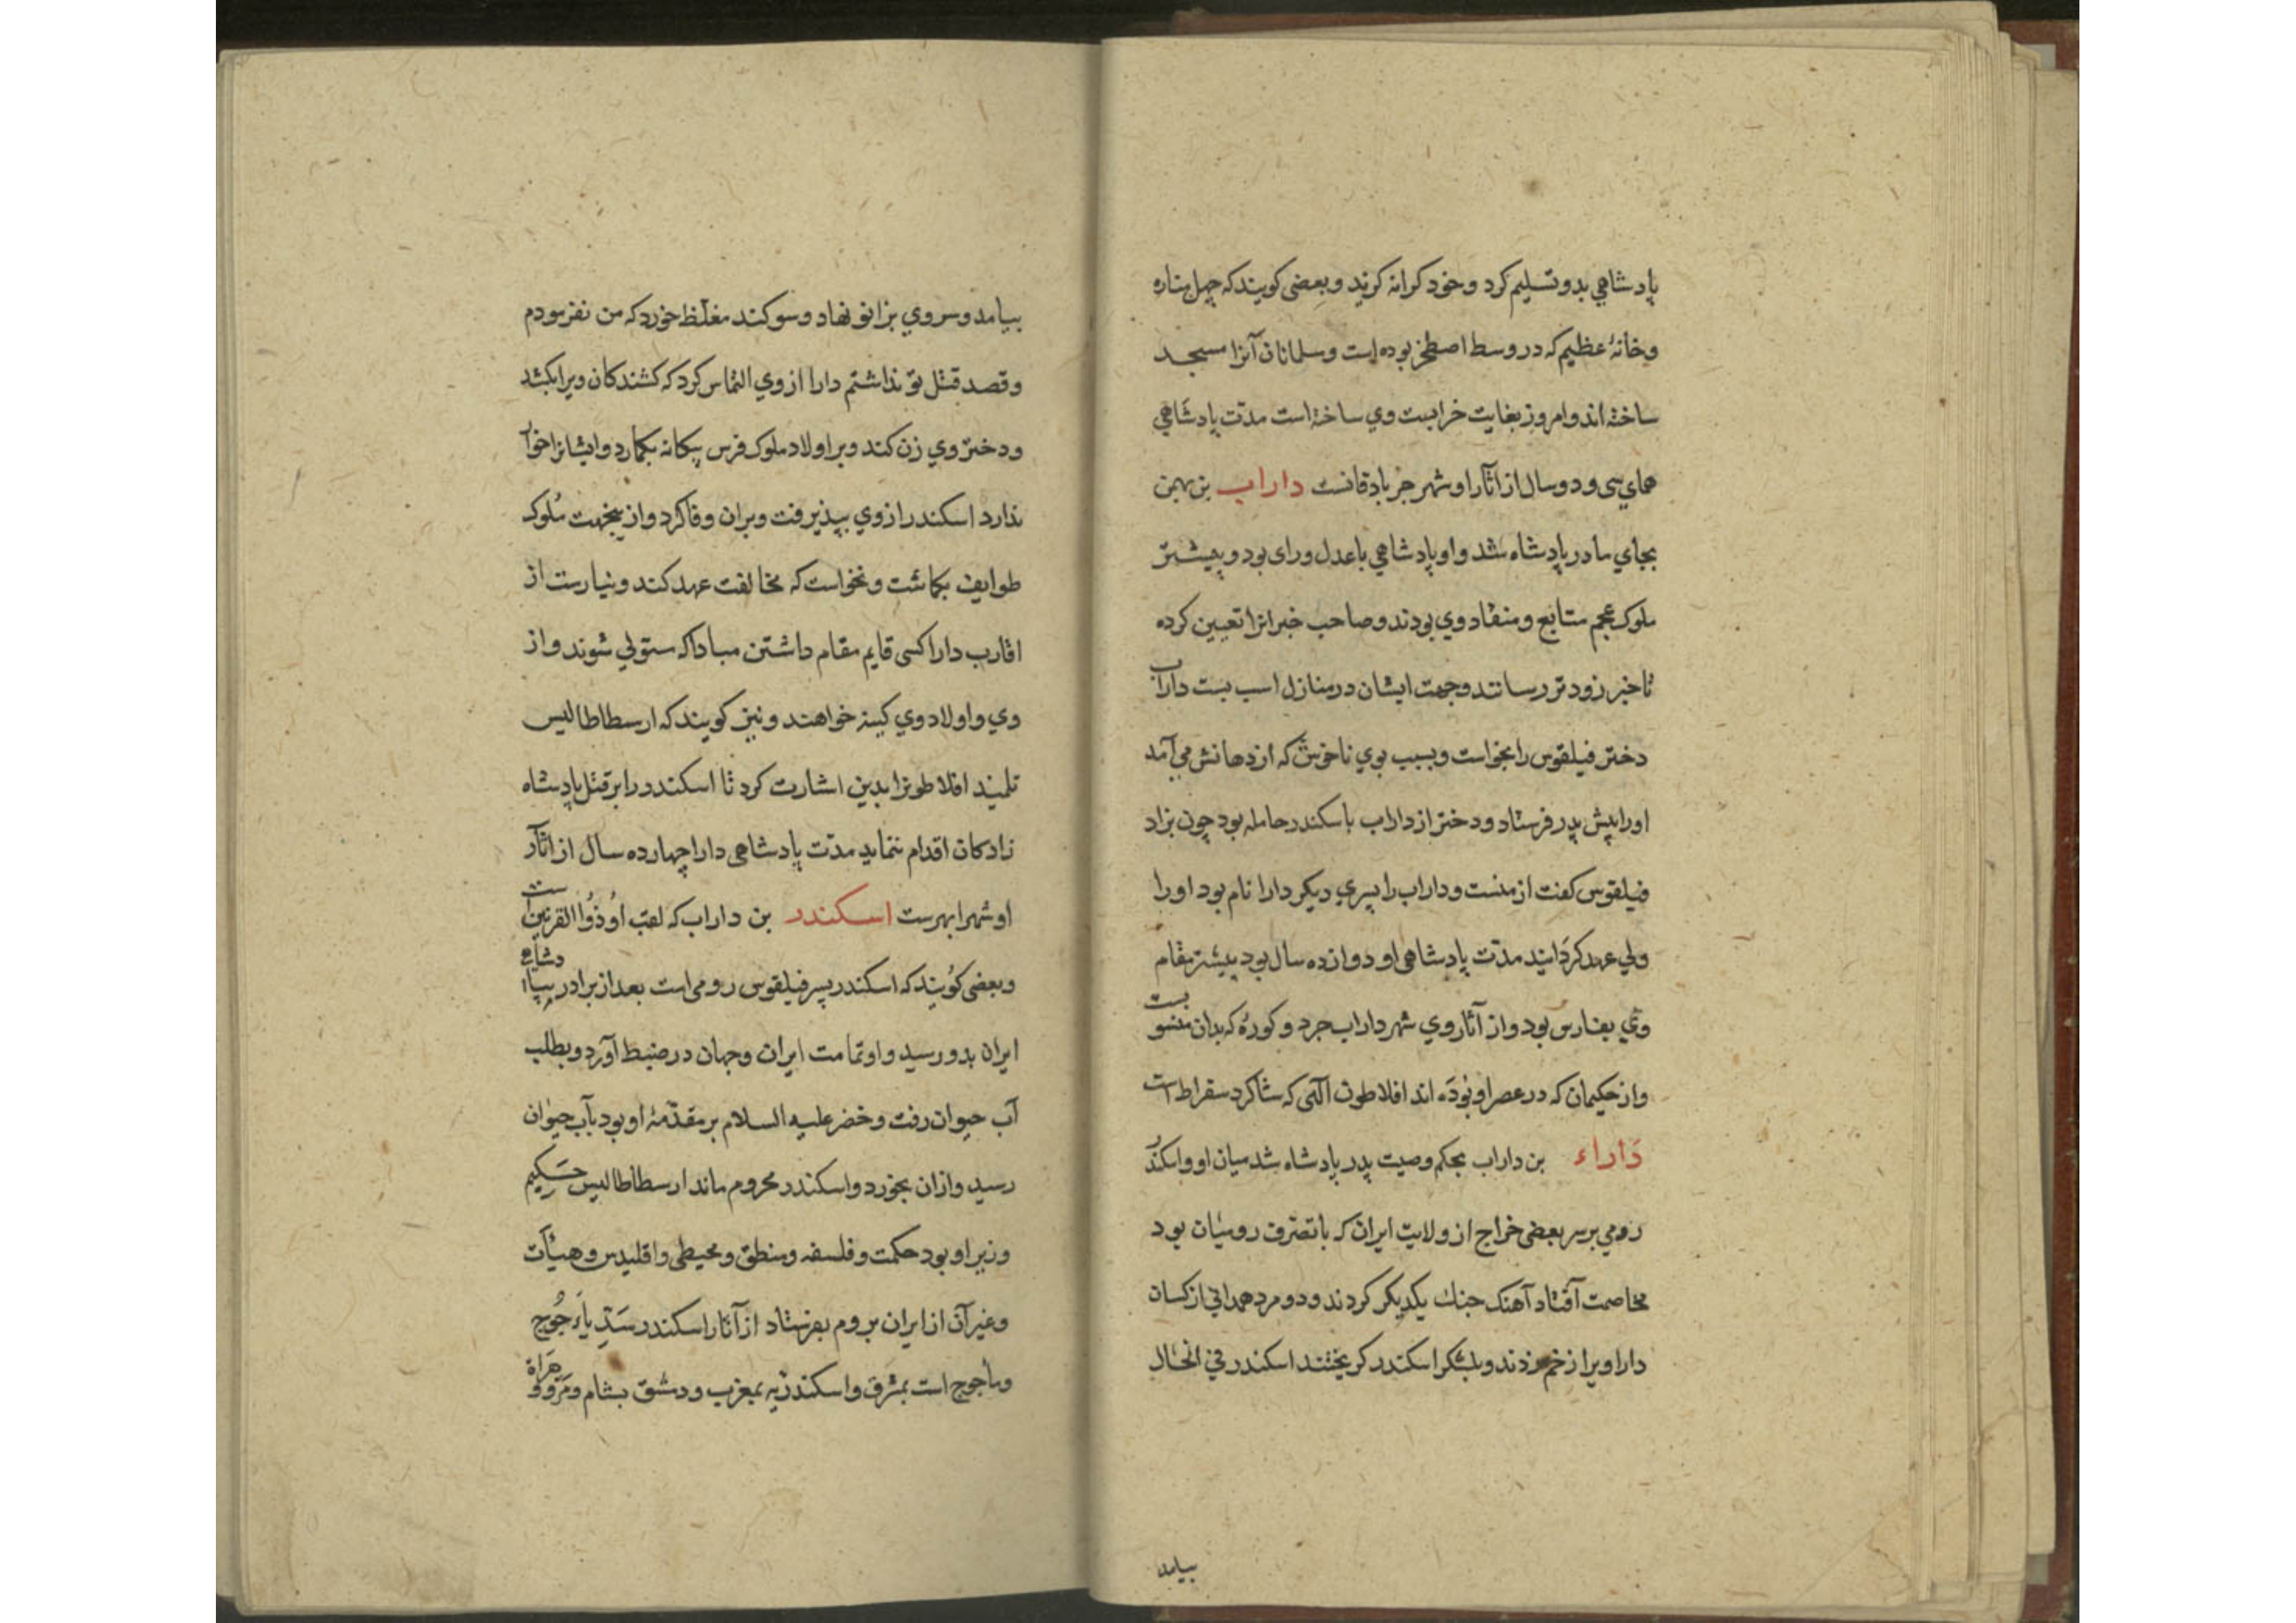 پادشاهي بدو تسليم كرد و خود كرانه كزيد و بعضى كويند كه چهل مناره
و خانهٔ عظيم كه در وسط اصطخر بوده است و مسلمانان آنرا مسجد
ساخته اند و امروز بغايت خرابست وي ساخته است مدّت پادشاهي
هماي سى و دو سال از آثار او شهر جرباذقانست داراب بن بهمن
بجاي مادر پادشاه شد و او پادشاهي با عدل و راى بود و پيشتر
ملوك عجم متابع و منقاد وي بودند و صاحب خبرانرا تعيين كرده
تا خبر زودتر رسانند و جهت ايشان در منازل اسب بست داراب
دختر فيلقوس را بخواست و بسبب بوي ناخوش كه از دهانش مي آمد
او را پيش پدر فرستاد و دختر از داراب باسكندر حامله بود چون بزاد
فيلقوس كفت از منست و داراب را پسري ديكر دارا نام بود او را
ولي عهد كردانيد مدّت پادشاهى او دوازده سال بود بيشتر مقام
وي بفارس بود و از آثار وي شهر داراب جرد و كورهٔ كه بدان منسوبست
و از حكيمان كه در عصر او بوده اند افلاطون الٓهى كه شاكرد سقراط است
داراء بن داراب بحكم وصيت پدر پادشاه شد ميان او و اسكندر
رومي بر سر بعضى خراج از ولايت ايران كه با تصرف روميان بود
مخاصمت افتاد آهنك جنك يكديكر كردند و دو مرد همداني از كسان
دارا ويرا زخم زدند و بلشكر اسكندر كريختند اسكندر في الحال
بيامد
بيامد و سر وي بزانو نهاد و سوكند مغلّظ خورد كه من نفرمودم
و قصد قتل تو نداشتم دارا از وي التماس كرد كه كشندكان ويرا بكشد
و دختر وي زن كند و بر اولاد ملوك فرس بيكانه نكمارد و ايشانرا خوار
ندارد اسكندر از وي بپذيرفت و بران وفا كرد و از ينجهت ملوك
طوايف بكماشت و نخواست كه مخالفت عهد كند و نيارست از
اقارب دارا كسى قايم مقام داشتن مبادا كه مستولي شوند و از
وي و اولاد وي كينه خواهند و نيز كويند كه ارسطاطاليس
تلميذ افلاطونرا بدين اشارت كرد تا اسكندر را بر قتل پادشاه
زادكان اقدام ننمايد مدّت پادشاهى دارا چهارده سال از آثار
او شهر ابهرست اسكندر بن داراب كه لقب او ذو القرنين است
و بعضى كويند كه اسكندر پسر فيلقوس رومى است بعد از برادر بپادشاهى
ايران بدو رسيد و او تمامت ايران و جهان در ضبط آورد و بطلب
آب حيوان رفت و خضر عليه السلام بر مقدّمهٔ او بود بآب حيوان
رسيد و ازان بخورد و اسكندر محروم ماند ارسطاطاليس حكيم
وزير او بود حكمت و فلسفه و منطق و محيطى و اقليدس و هيئآت
و غير آن از ايران بروم بفرستاد از آثار اسكندر سدّ يأجوج
و مأجوج است بمشرق و اسكندريه بمغرب و دمشق بشام و مرو و هراة